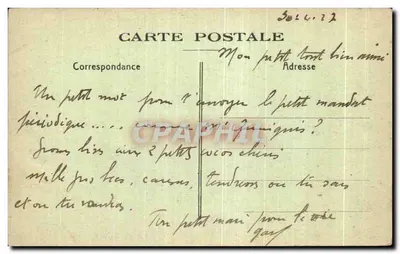 30-4-27
CARTE POSTALE
Mon petit tout bien aimé
Correspondance
Adresse
Un petit mot pour t'envoyer le petit mandat
périodique....
Gros bises aux 2 petits cocos chéris
Mille gros bces, caresses, tendresses où tu sais
et où tu voudras
Ton petit mari pour la vie